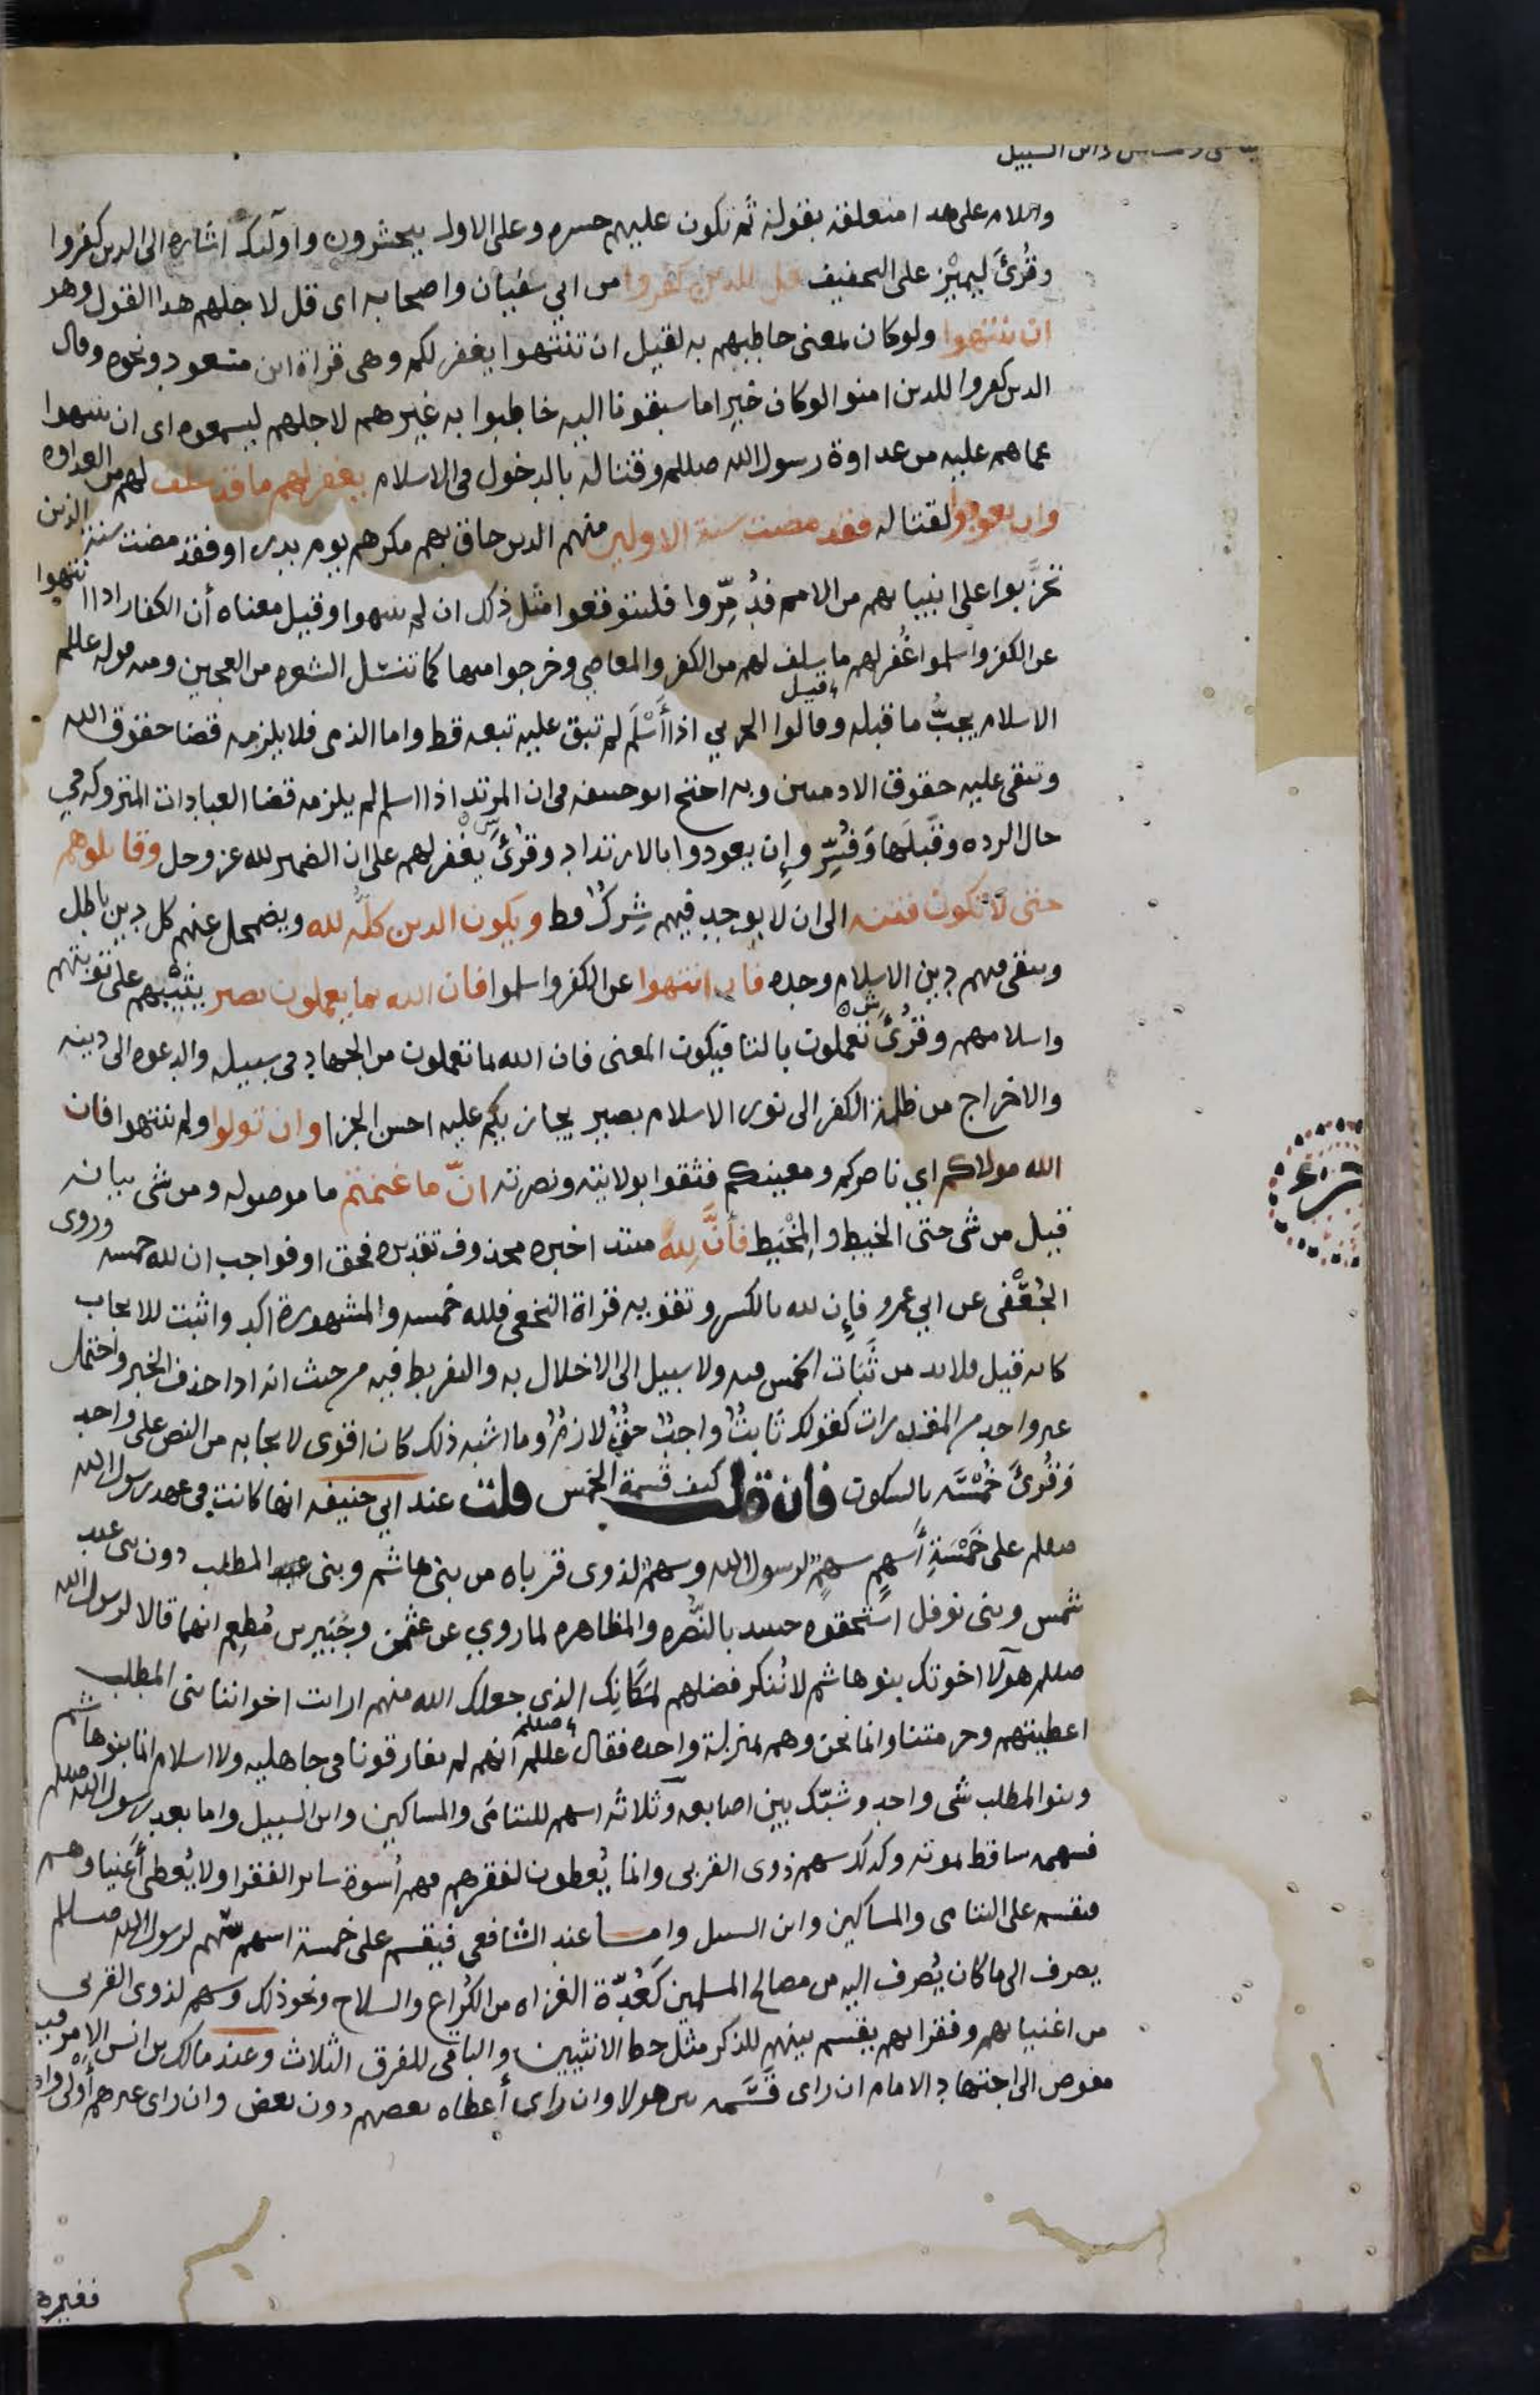 وابن السبيل
واللام على هدا متعلقة بقوله ثم تكون عليهم حسره وعلى الاول بيحشرون واولئك اشاره الى الدين كفروا
وقُرئَ ليميز على التخفيف قل للدين كفروا من ابي سفيان واصحابه اى قل لاجلهم هدا القول وهو
ان ينتهوا ولوكان بمعنى خاطبهم به لقيل ان تنتهوا يغفر لكم وهى قراة ابن مسعود ونحوه وقال
الدين كفروا للدين امنوا لوكان خيرا ما سبقونا اليه خاطبوا به غيرهم لاجلهم ليسمعوه اى ان ينتهوا
عماهم عليه من عداوة رسول الله صللم وقتاله بالدخول فى الاسلام يغفر لهم ما قد سلف لهم من العداوه
وان يعودوا لقتاله فقد مضت سنة الاولين منهم الدين حاق بهم مكرهم يوم بدر او فقد مضت سنة الذين
تحزَّبوا على انبيايهم من الامم فدُمِّروا فليتوقعوا مثل ذلك ان لم ينتهوا وقيل معناه أن الكفار ادا انتهوا
عن الكفر واسلموا غُفر لهم ما سلف لهم من الكفر والمعاصي وخرجوا منها كما تنسل الشعره من العجين ومنه قوله عللم
الاسلام يجبُّ ما قبله وقالوا قيل الحربي اذا أَسْلَم لم تبق عليه تبعه قط واما الذمى فلا يلزمه قضا حقوق الله
وتبقى عليه حقوق الادميين وبه احتج ابو حنيفه فى ان المرتد اذا اسلم لم يلزمه قضا العبادات المتروكه في
حال الرده وقَبلَها وَفُسِّر وإِن يعودوا بالارتداد وقُرئَ يَغفر لهم على ان الضمير لله عز وجل وقاتلوهم
حتى لا تكون فتنه الى ان لا يوجد فيهم شِركٌ قط ويكون الدين كلُّه لله ويضمحل عنهم كل دين باطل
ويبقى فيهم دين الاسلام وحده فان انتهوا عن الكفر واسلموا فان الله بما يعملون بصير يثيبهم على توبتهم
واسلامهم وقُرئَ تعملون بالتا فيكون المعنى فان الله بما تعملون من الجهاد فى سبيله والدعوه الى دينه
والاخراج من ظلمة الكفر الى نور الاسلام بصير يجازيكم عليه احسن الجزا وان تولوا ولم ينتهوا فان
الله مولاكم اي ناصركم ومعينكم فثقوا بولايته ونصرته انّ ما غنمتم ما موصوله ومن شى بيانه
قيل من شى حتى الخيط والمِخْيَط فأنَّ لله مبتدا خبره محذوف تقديره فحق او فواجب ان لله خمسه وروى
الجُعْفى عن ابي عمرو فإِن لله بالكسر وتقويه قراة النخعى فلله خمسه والمشهورة اكد واثبت للايجاب
كانه قيل فلابد من ثَبات الخمس فيه ولا سبيل الى الاخلال به والتفريط فيه من حيث انه ادا حذف الخبر واحتمل
غير واحد من المقدرات كقولك ثابتٌ واجبٌ حقٌ لازمٌ وما اشبه ذلك كان اقوى لايجابه من النص على واحد
وَقُرئَ خُمْسَه بالسكون فان قلت كيف قسمة الخمس قلت عند ابي حنيفه انها كانت في عهد رسول الله
صعلم على خَمْسَةِ أَسهمٍ سهمٌ لرسول الله وسهمٌ لذوى قرباه من بنى هاشم وبنى عبد المطلب دون بنى عبد
شمس وبنى نوفل استحقوه حينيد بالنُّصره والمظاهره لما روي عن عثمن وجُبَيرِ بن مُطعِم انهما قالا لرسول الله
صللم هولا اخوتك بنوهاشم لا نُنكر فضلهم لمَكَانِك الذى جعلك الله منهم ارايت اخواننا بنى المطلب
اعطيتهم وحرمتنا وانما نحن وهم بمنزلة واحده فقال عللم صللم انهم لم يفارقونا فى جاهليه ولا اسلام انما بنوهاشم
وبنوالمطلب شى واحد وشبّك بين اصابعه وثلاثه اسهم لليتامَى والمساكين وابن السبيل واما بعد رسول الله صللم
فسهمه ساقط بموته وكدلك سهم ذوى القربى وانما يُعطون لفقرهم فهم أسوة ساير الفقرا ولا يُعطى أَغنياوهم
فيقسم على اليتامى والمساكين وابن السبيل واما عند الشافعى فيقسم على خمسة اسهم سهم لرسول الله صللم
يصرف الى ما كان يُصرف اليه من مصالح المسلمين كَعُدّة الغزاه من الكُراع والسلاح ونحوذلك وسهم لذوى القربى
من اغنيايهم وفقرايهم يقسم بينهم للذكر مثل حظ الانثيين والباقى للفرق الثلاث وعند مالك بن انس الامر فيه
مفوض الى اجتهاد الامام ان راى قَسَّمه بين هولا وان راى أعطاه بعضهم دون بعض وان راى غيرهم أَوْلى واهم
فغيرهم
جزء